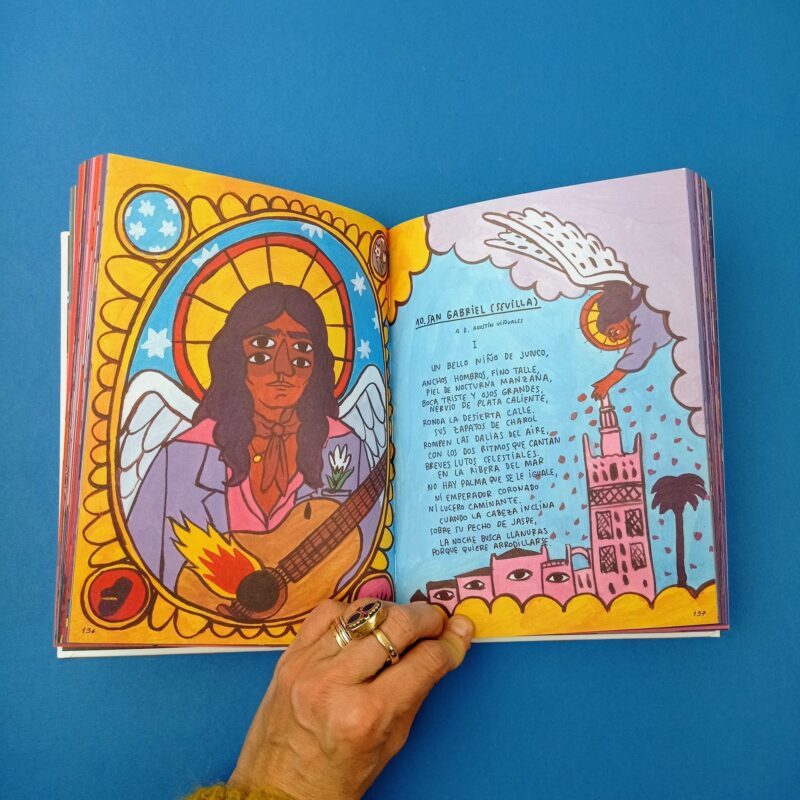 136
10. SAN GABRIEL (SEVILLA)
A D. AGUSTÍN VIÑUALES
I
UN BELLO NIÑO DE JUNCO,
ANCHOS HOMBROS, FINO TALLE,
PIEL DE NOCTURNA MANZANA,
BOCA TRISTE Y OJOS GRANDES,
NERVIO DE PLATA CALIENTE,
RONDA LA DESIERTA CALLE.
SUS ZAPATOS DE CHAROL
ROMPEN LAS DALIAS DEL AIRE,
CON LOS DOS RITMOS QUE CANTAN
BREVES LUTOS CELESTIALES.
EN LA RIBERA DEL MAR
NO HAY PALMA QUE SE LE IGUALE,
NI EMPERADOR CORONADO
NI LUCERO CAMINANTE.
CUANDO LA CABEZA INCLINA
SOBRE SU PECHO DE JASPE,
LA NOCHE BUSCA LLANURAS
PORQUE QUIERE ARRODILLARSE.
137